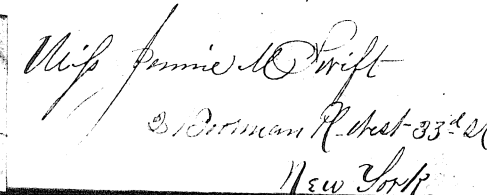 Miss Jennie M Swift
2 Bowman Pl. West 33d St
New York